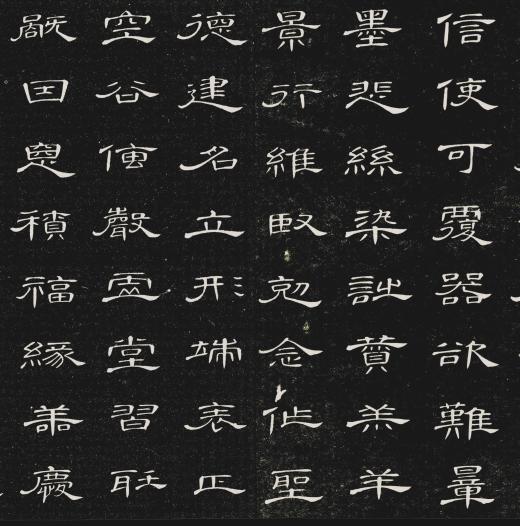 信使可覆器欲難量
墨悲絲染詩贊羔羊
景行維賢剋念作聖
德建名立形端表正
空谷傳聲虛堂習聽
禍因惡積福緣善慶